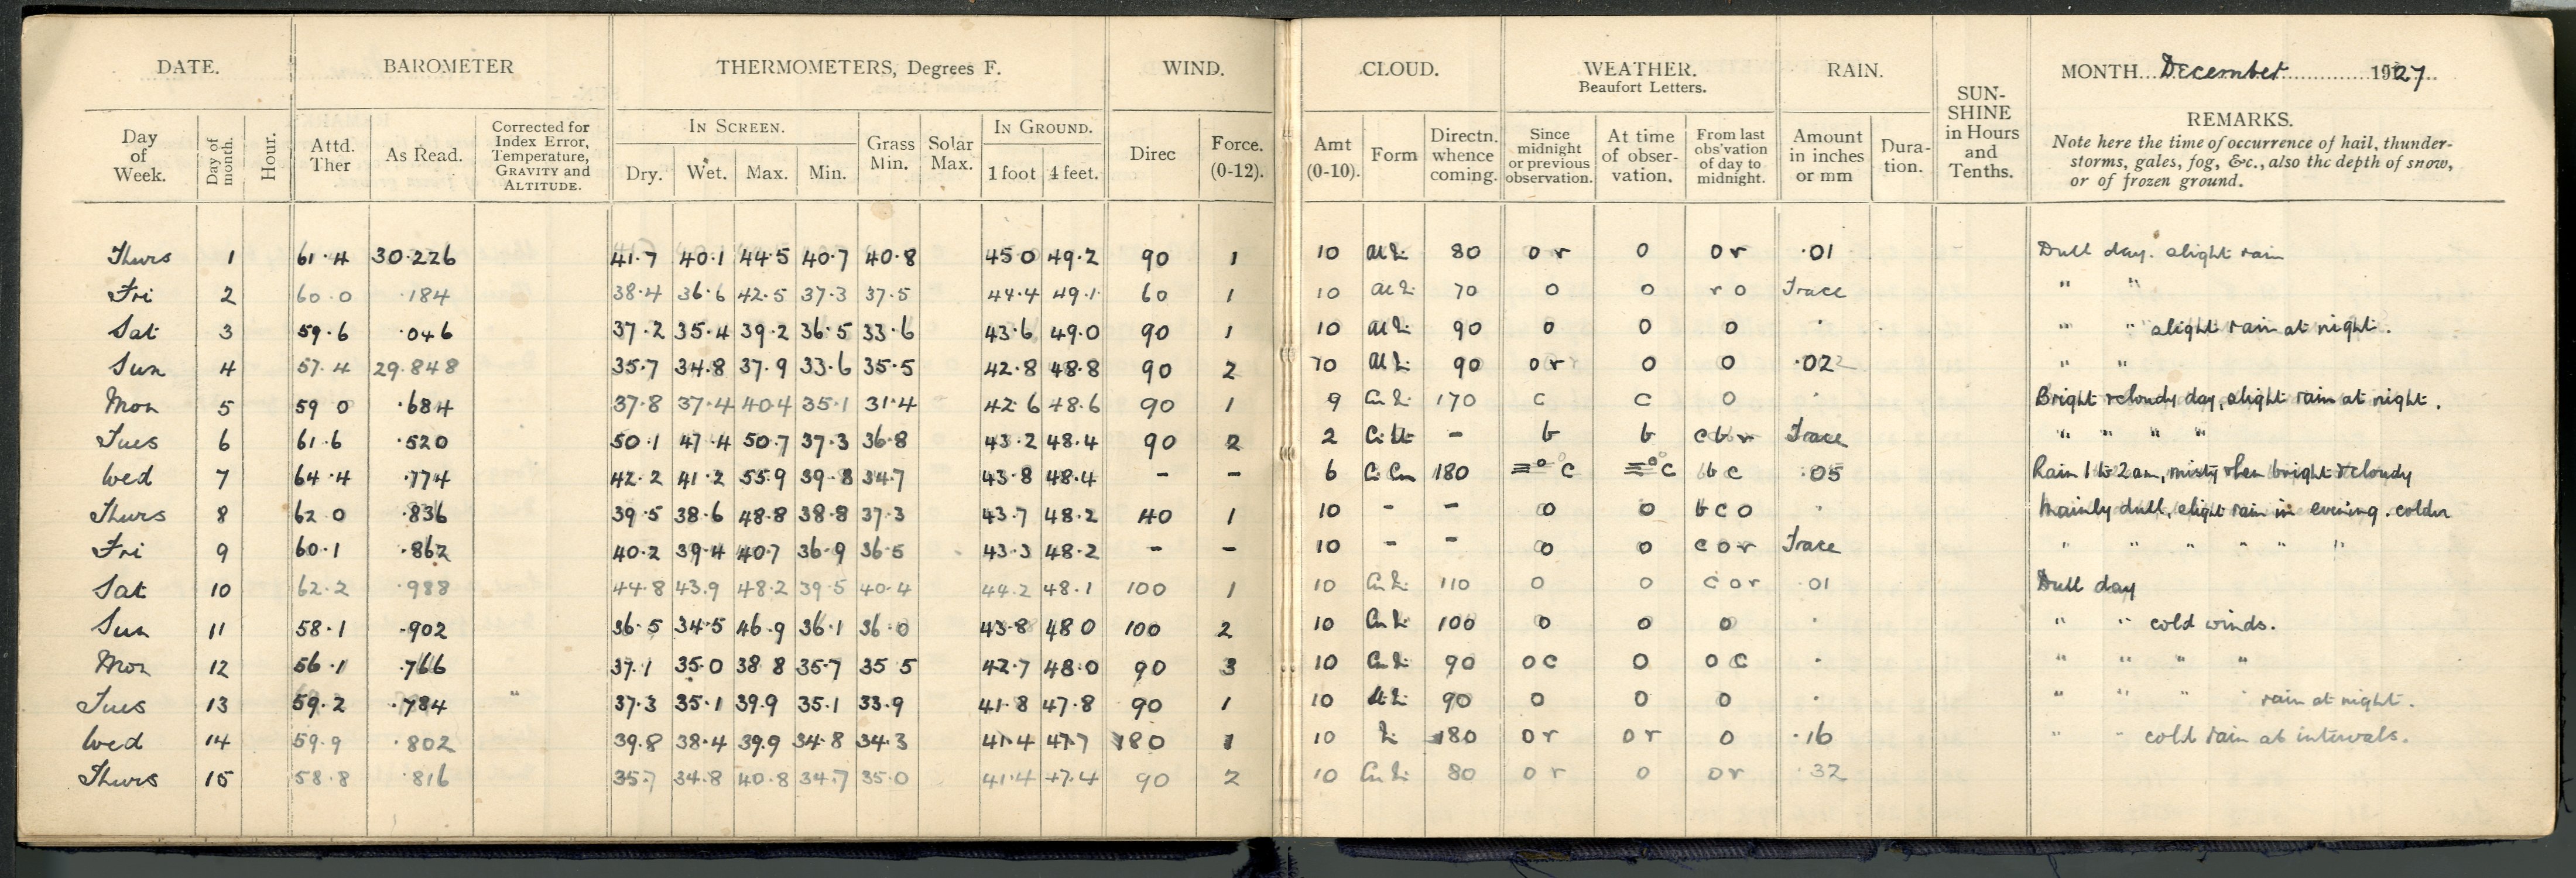 DATE. BAROMETER THERMOMETERS, Degrees F. WIND. CLOUD. WEATHER. Beaufort Letters. RAIN. SUN-SHINE in Hours and Tenths. MONTH December 1927
Day of Week. Day of month. Hour. Attd. Ther As Read. Corrected for Index Error, Temperature, GRAVITY and ALTITUDE. IN SCREEN. Dry. Wet. Max. Min. Grass Min. Solar Max. IN GROUND. 1 foot 4 feet. Direc Force. (0-12). Amt (0-10). Form Directn. whence coming. Since midnight or previous observation. At time of obser-vation. From last obs'vation of day to midnight. Amount in inches or mm Dura-tion. REMARKS.
Note here the time of occurrence of hail, thunder-
storms, gales, fog, &c., also the depth of snow,
or of frozen ground.
Thurs 1 61.4 30.226 41.7 40.1 44.5 40.7 40.8 45.0 49.2 90 1 10 80 o r o o r .01 Dull day. slight rain
Fri 2 60.0 .184 38.4 36.6 42.5 37.3 37.5 44.4 49.1 60 1 10 70 o o r o Trace " "
Sat 3 59.6 .046 37.2 35.4 39.2 36.5 33.6 43.6 49.0 90 1 10 90 o o o . " " slight rain at night.
Sun 4 57.4 29.848 35.7 34.8 37.9 33.6 35.5 42.8 48.8 90 2 10 90 o r o o .02 " "
Mon 5 59.0 .684 37.8 37.4 40.4 35.1 31.4 42.6 48.6 90 1 9 170 c c o . Bright & cloudy day, slight rain at night.
Tues 6 61.6 .520 50.1 47.4 50.7 37.3 36.8 43.2 48.4 90 2 2 - b b c b r Trace " " " "
Wed 7 64.4 .774 42.2 41.2 55.9 39.8 34.7 43.8 48.4 - - 6 Ci Cu 180 ≡° c ≡° c b c .05 Rain 1 to 2 am, misty then bright & cloudy
Thurs 8 62.0 .836 39.5 38.6 48.8 38.8 37.3 43.7 48.2 40 1 10 - - o o b c o . Mainly dull, slight rain in evening. colder
Fri 9 60.1 .862 40.2 39.4 40.7 36.9 36.5 43.3 48.2 - - 10 - - o o c o r Trace " " " " " "
Sat 10 62.2 .988 44.8 43.9 48.2 39.5 40.4 44.2 48.1 100 1 10 110 o o c o r .01 Dull day
Sun 11 58.1 .902 36.5 34.5 46.9 36.1 36.0 43.8 48.0 100 2 10 100 o o o . " " cold winds.
Mon 12 56.1 .766 37.1 35.0 38.8 35.7 35.5 42.7 48.0 90 3 10 90 o c o o c . " " " "
Tues 13 59.2 .784 " 37.3 35.1 39.9 35.1 33.9 41.8 47.8 90 1 10 90 o o o . " " " " rain at night.
Wed 14 59.9 .802 39.8 38.4 39.9 34.8 34.3 41.4 47.7 180 1 10 180 o r o r o .16 " " cold rain at intervals.
Thurs 15 58.8 .816 35.7 34.8 40.8 34.7 35.0 41.4 47.4 90 2 10 80 o r o o r .32